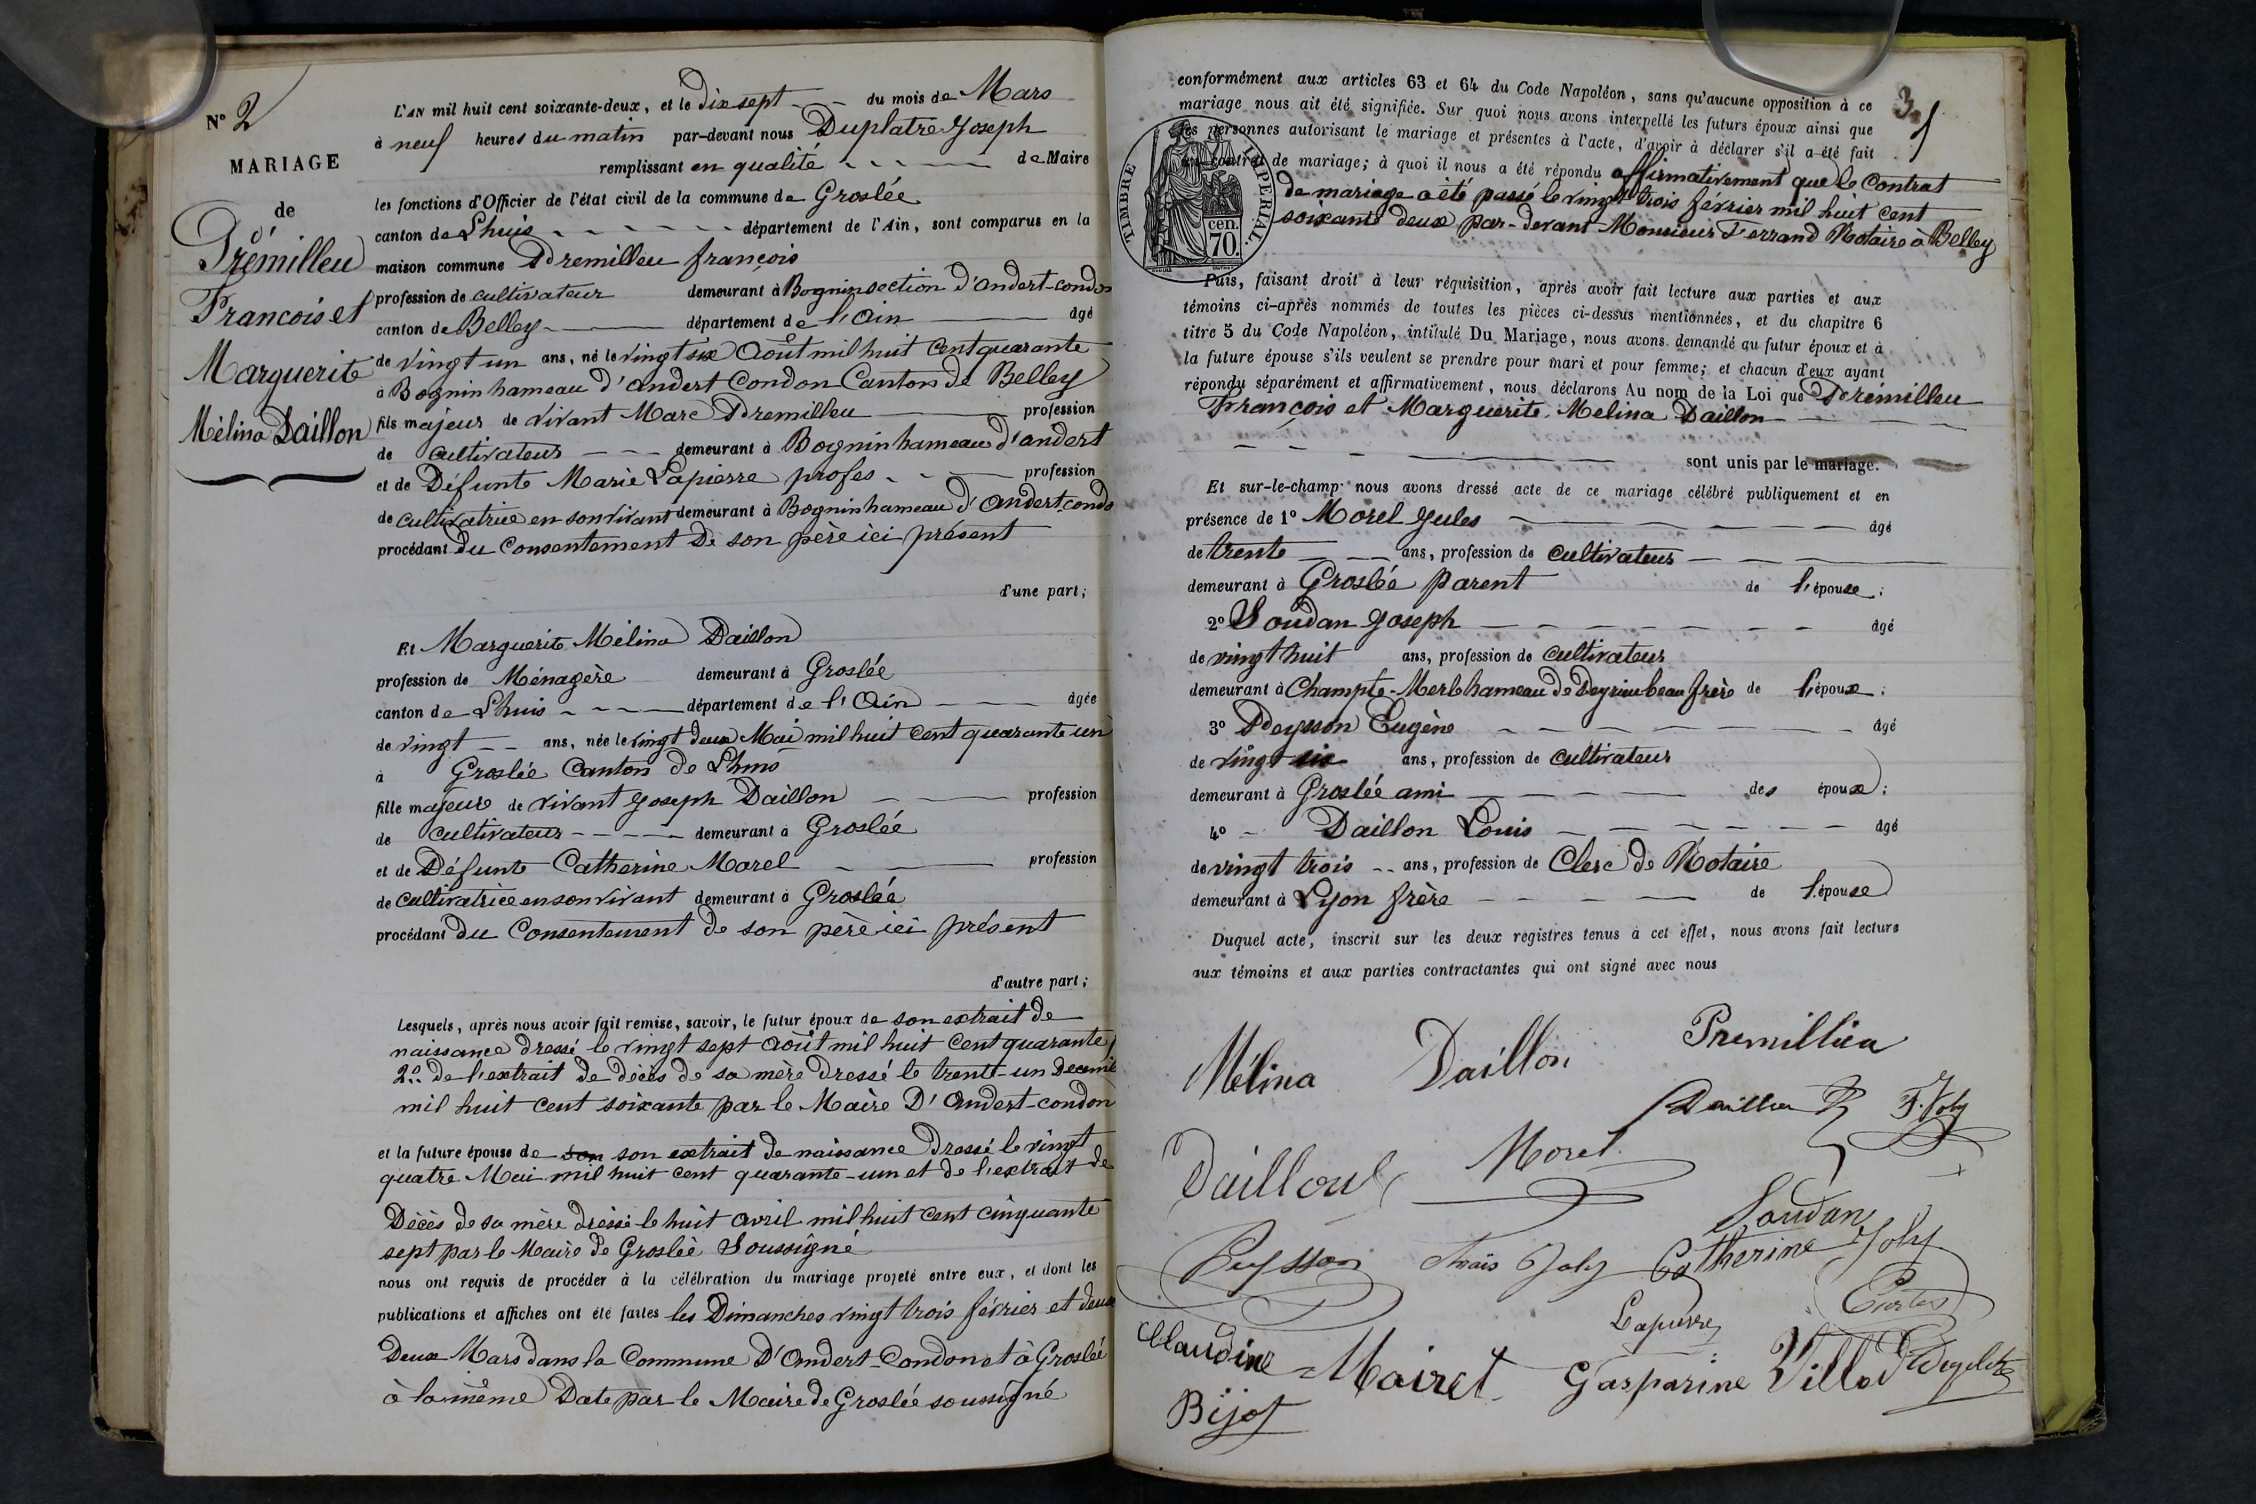 N° 2
MARIAGE
de
Prémilleu
François et
Marguerite
Mélina Daillon
L'AN mil huit cent soixante-deux, et le dix sept du mois de Mars
à neuf heures du matin par-devant nous Duplatre Joseph
remplissant en qualité de Maire
les fonctions d'Officier de l'état civil de la commune de Groslée
canton de Lhuis département de l'Ain, sont comparus en la
maison commune Premilleu françois
profession de cultivateur demeurant à Bognin section d'andert-condon
canton de Belley département de l'Ain âgé
de vingt un ans, né le vingt six Août mil huit cent quarante
à Bognin hameau d'andert Condon Canton de Belley
fils majeur de vivant Marc Premilleu profession
de cultivateur demeurant à Bognin hameau d'andert
et de Défunte Marie Lapierre profes profession
de cultivatrice en son vivant demeurant à Bognin hameau d'Andert condo
procédant du Consentement De son père ici présent
d'une part;
Et Marguerite Mélina Daillon
profession de Ménagère demeurant à Groslée
canton de Lhuis département de l'Ain âgée
de vingt ans, née le vingt deux Mai mil huit cent quarante un
à Groslée Canton de Lhuis
fille majeure de vivant Joseph Daillon profession
de cultivateur demeurant à Groslée
et de Défunte Catherine Morel profession
de cultivatrice en son vivant demeurant à Groslée
procédant du Consentement de son père ici présent
d'autre part;
Lesquels, après nous avoir fait remise, savoir, le futur époux de son extrait de
naissance dressé le vingt sept Août mil huit Cent quarante
2° de l'extrait de décès de sa mère dressé le trente-un Decem
mil huit cent soixante par le Maire D'Andert-condon
et la future épouse de son son extrait de naissance Dressé le vingt
quatre Mai mil huit cent quarante-un et de l'extrait de
Décès de sa mère dressé le huit avril mil huit Cent cinquante
sept par le Maire de Groslée Soussigné
nous ont requis de procéder à la célébration du mariage projeté entre eux, et dont les
publications et affiches ont été faites les Dimanches vingt trois février et deux
Deux Mars dans la Commune D'Andert-Condon et à Groslée
à la même Date par le Maire de Groslée soussigné
3
conformément aux articles 63 et 64 du Code Napoléon, sans qu'aucune opposition à ce
mariage nous ait été signifiée. Sur quoi nous avons interpellé les futurs époux ainsi que
les personnes autorisant le mariage et présentes à l'acte, d'avoir à déclarer s'il a été fait
un contrat de mariage; à quoi il nous a été répondu affirmativement que le Contrat
de mariage a été passé le vingt trois février mil huit cent
soixante deux par-devant Monsieur Ferrand Notaire à Belley
TIMBRE IMPERIAL
cen. 70.
Puis, faisant droit à leur réquisition, après avoir fait lecture aux parties et aux
témoins ci-après nommés de toutes les pièces ci-dessus mentionnées, et du chapitre 6
titre 5 du Code Napoléon, intitulé Du Mariage, nous avons demandé au futur époux et à
la future épouse s'ils veulent se prendre pour mari et pour femme; et chacun d'eux ayant
répondu séparément et affirmativement, nous déclarons Au nom de la Loi que Prémilleu
François et Marguerite Melina Daillon
sont unis par le mariage.
Et sur-le-champ nous avons dressé acte de ce mariage célébré publiquement et en
présence de 1° Morel Jules âgé
de trente ans, profession de cultivateur
demeurant à Groslée parent de l'épouse;
2° Soudan Joseph âgé
de vingt huit ans, profession de cultivateur
demeurant à Champte-Merle hameau de Peyrieu beau frère de l'époux;
3° Peysson Eugène âgé
de vingt six ans, profession de cultivateur
demeurant à Groslée ami des époux;
4° Daillon Louis âgé
de vingt trois ans, profession de Clerc de Notaire
demeurant à Lyon frère de l'épouse
Duquel acte, inscrit sur les deux registres tenus à cet effet, nous avons fait lecture
aux témoins et aux parties contractantes qui ont signé avec nous
Mélina Daillon Premillieu
Daillon F. Joly
Daillon L Morel
Soudan
Peysson Thaïs Joly Catherine Joly
Lapierre
Claudine Mairet Gasparine Villod
Bijot